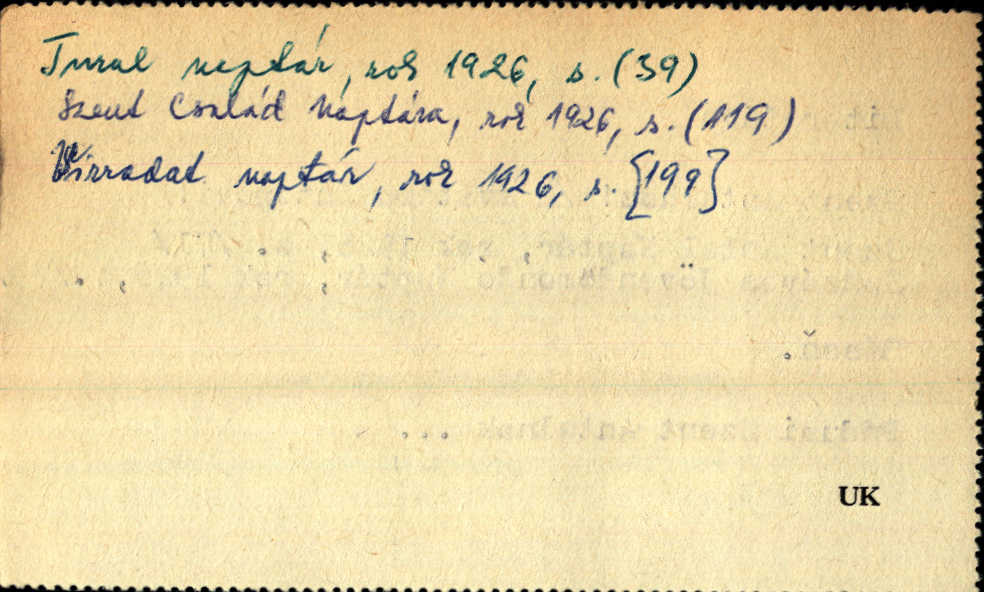 Turul naptár, rok 1926, s. (39)
Szent Család Náptára, rok 1926, s. (119)
Virradat naptár, rok 1926, s. [199]
UK